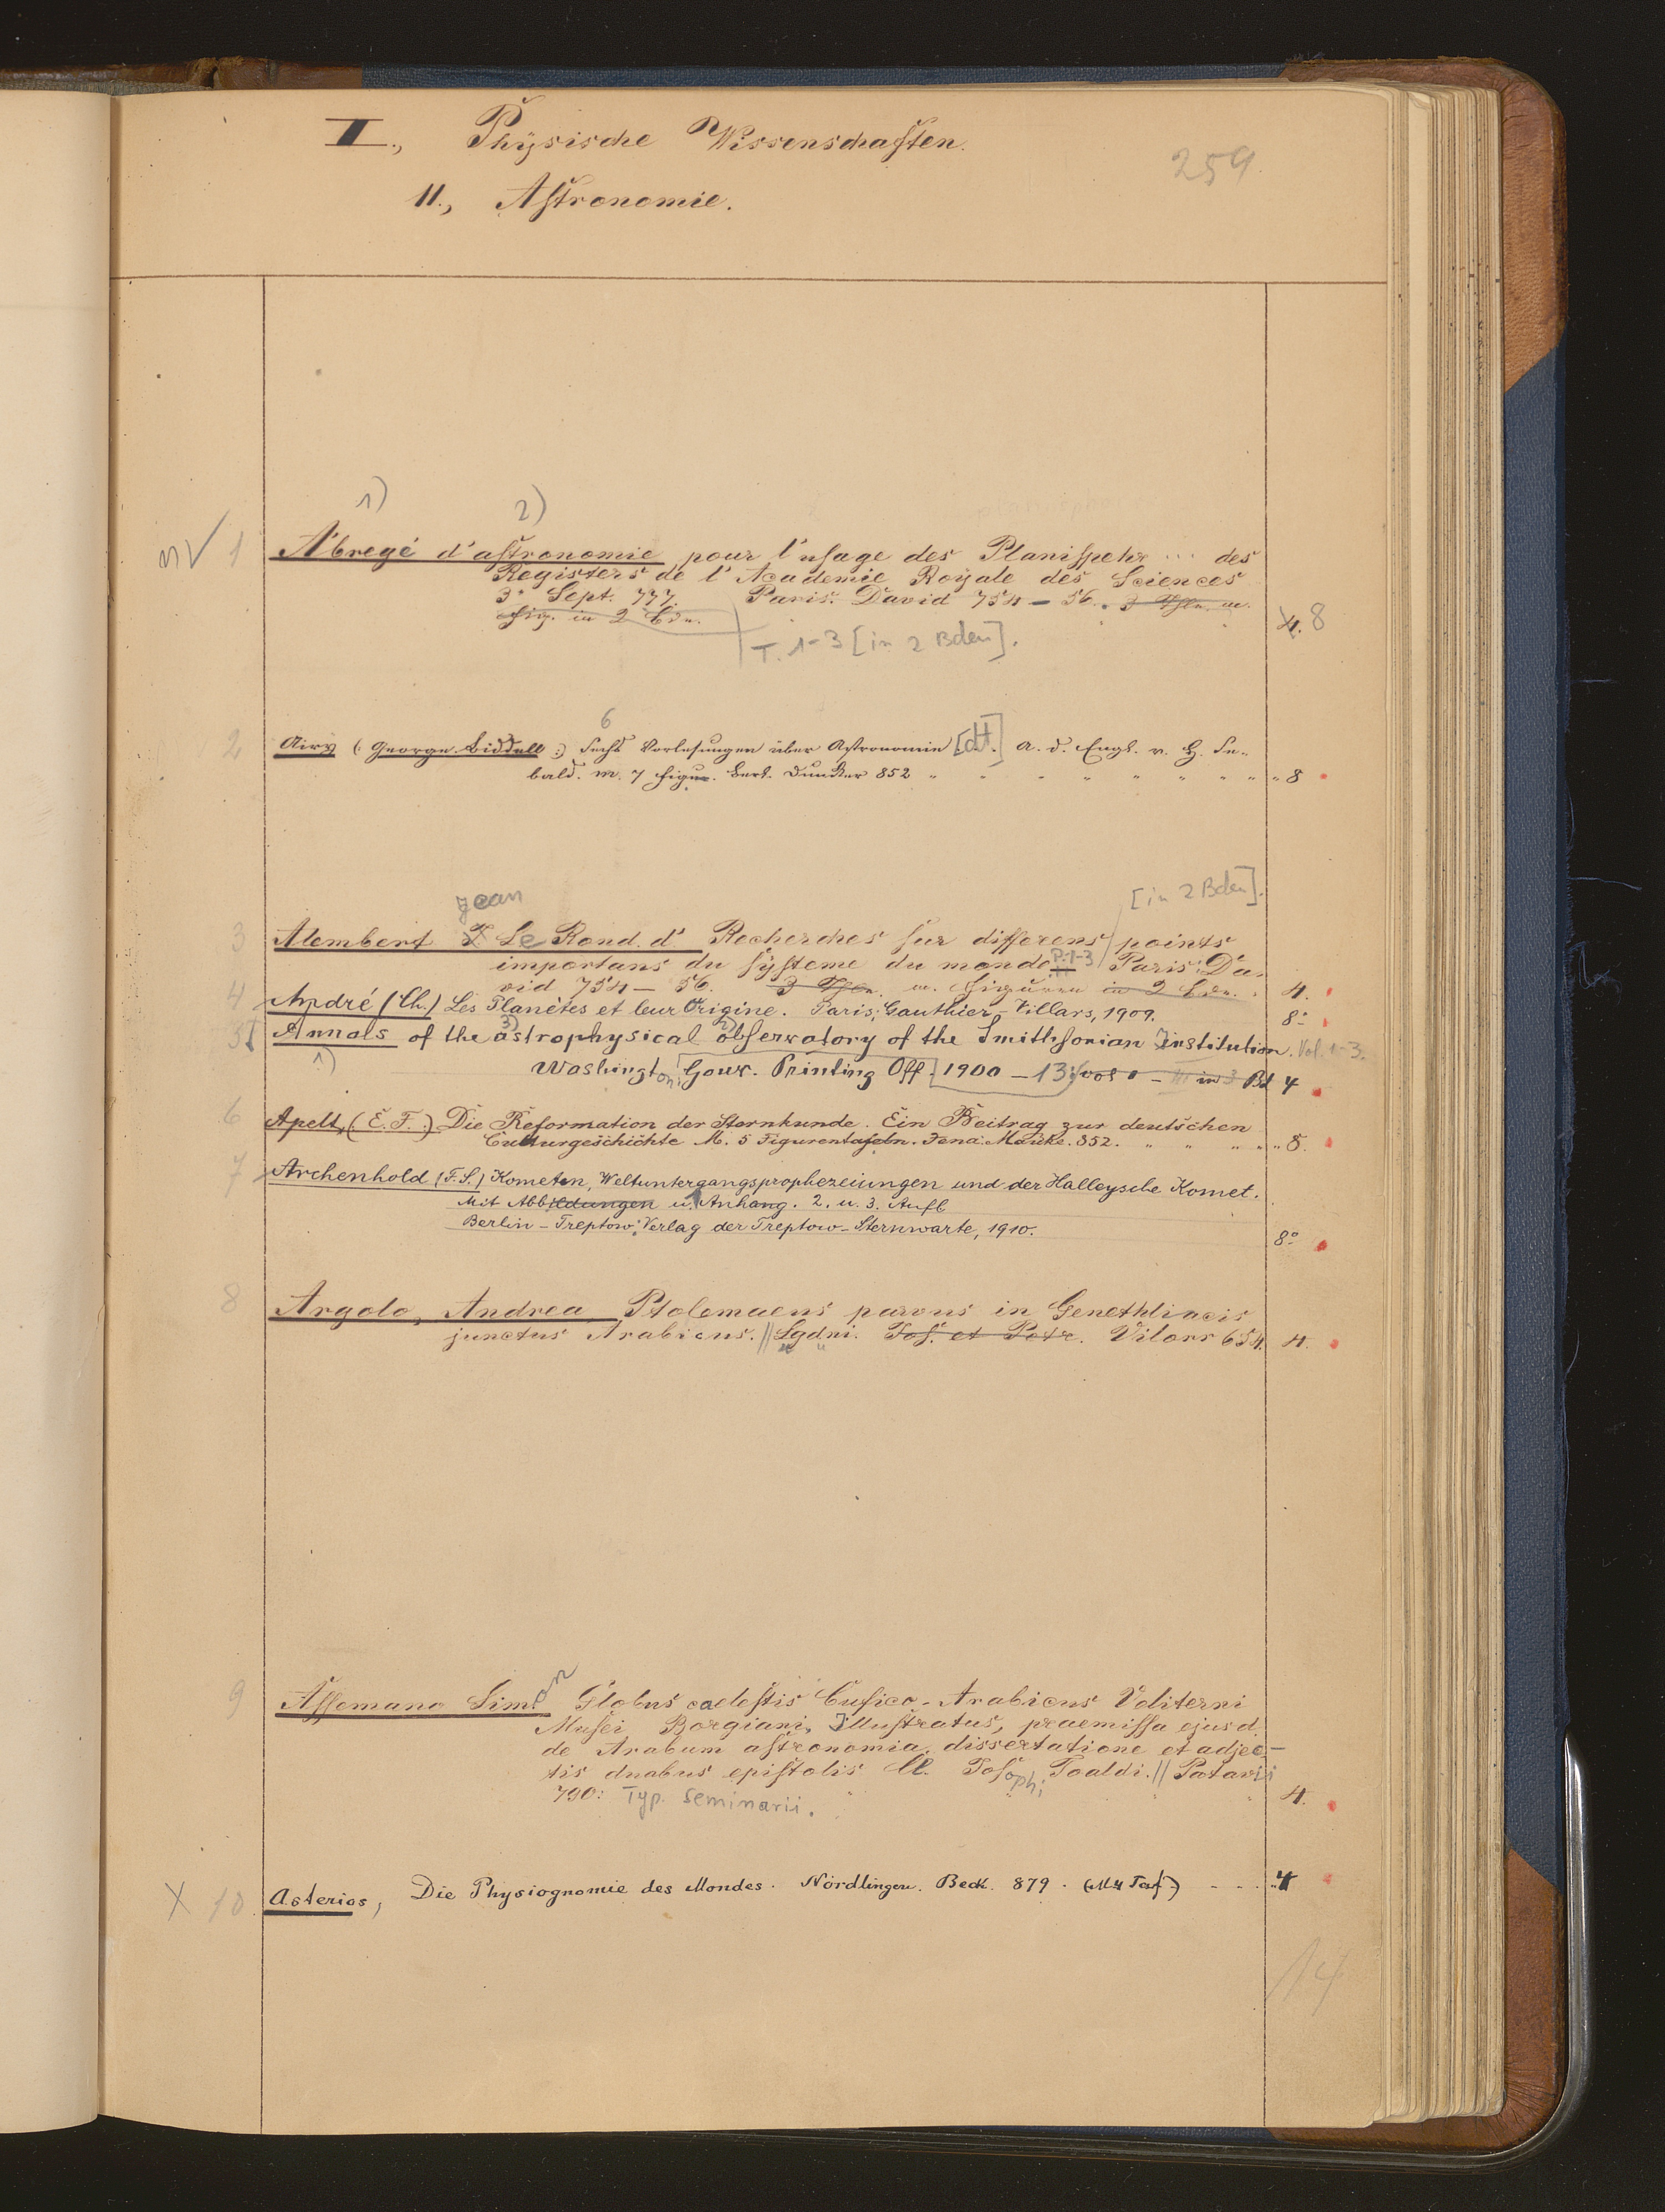 II., Physische Wissenschaften.
259.
11., Astronomie.
1) 2)
1 Abregé d'astronomie pour l'usage des Planispehr ... des
Registers de l'Academie Royale des Sciences
3. Sept. 777. Paris. David 754-56. 3 Thle. m.
Fig. in 2 Bdn. 4. 8
T. 1-3 [in 2 Bden].
6
2 Airy (George Biddell:) Sechs Vorlesungen über Astronomie [dt.] a. d. Engl. v. H. Se-
bald. m. 7 Figur. Berl. Duncker 852 " 8
[in 2 Bden].
Jean
3 Alembert J. Le Rond. d'. Recherches sur differens points
importans du systeme du monde P. 1-3 Paris: Da-
vid 754-56. 3 Thle. m. Figuren in 2 Bdn. 4.
4 André (Ch.) Les Planètes et leur Origine. Paris; Gauthier-Villars, 1909. 8°
5 Annals of the astrophysical observatory of the Smithsonian Institution. Vol. 1-3.
1) 2) 3)
Washington; Gouv. Printing Off. 1900-13; vol I - III in 3 Bd 4
6 Apelt, (E. F.) Die Reformation der Sternkunde. Ein Beitrag zur deutschen
Culturgeschichte M. 5 Figurentafeln. Jena: Mauke. 852. " 8.
7 Archenhold (F. S.) Kometen, Weltuntergangsprophezeiungen und der Halleysche Komet.
Mit Abbildungen u. Anhang. 2. u. 3. Aufl
Berlin-Treptow: Verlag der Treptow-Sternwarte, 1910. 8°
8 Argolo, Andrea Ptolomaeus parvus in Genethliacis
junctus Arabicus. // Lgdni. Jos. et Petr. Vilorr 654. 4.
9 Assemano Simon Globus caelestis Cufico-Arabicus Veliterni
Musei Borgiani, Illustratus, praemissa ejusd.
de Arabum astronomia dissertatione et adjec-
tis duabus epistolis Cl. Josephi Toaldi. // Patavii
790: Typ. Seminarii. 4.
X 10. Asterios, Die Physiognomie des Mondes. Nördlingen. Beck. 879. (M 4 Taf.) - - - 4
14